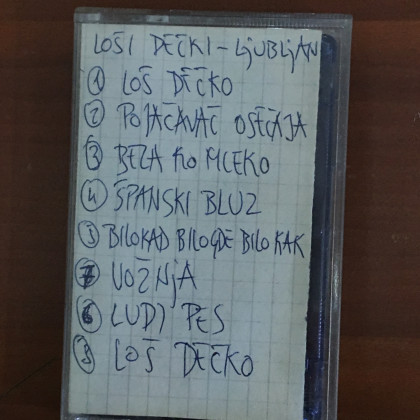 LOŠI DEČKI - LJUBLJAN
1 LOŠ DEČKO
2 POJAČAVAČ OSEĆAJA
3 BELA KO MLEKO
4 ŠPANSKI BLUZ
5 BILOKAD BILOGDE BILO KAK
7 VOŽNJA
6 LUDI PES
8 LOŠ DEČKO